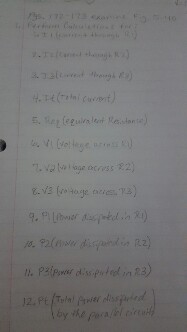 Pgs. 177-178 
b. Perform Calculations
1. I1 (current through R1)
2. I2 (current through R2)
3. I3 (current through R3)
4. It (Total current)
5. Req (equivalent Resistance)
6. V1 (voltage across R1)
7. V2 (voltage across R2)
8. V3 (voltage across R3)
9. P1 (Power dissipated in R1)
10. P2 (power dissipated in R2)
11. P3 (power dissipated in R3)
12. Pt (Total power dissipated
by the parallel circuit)